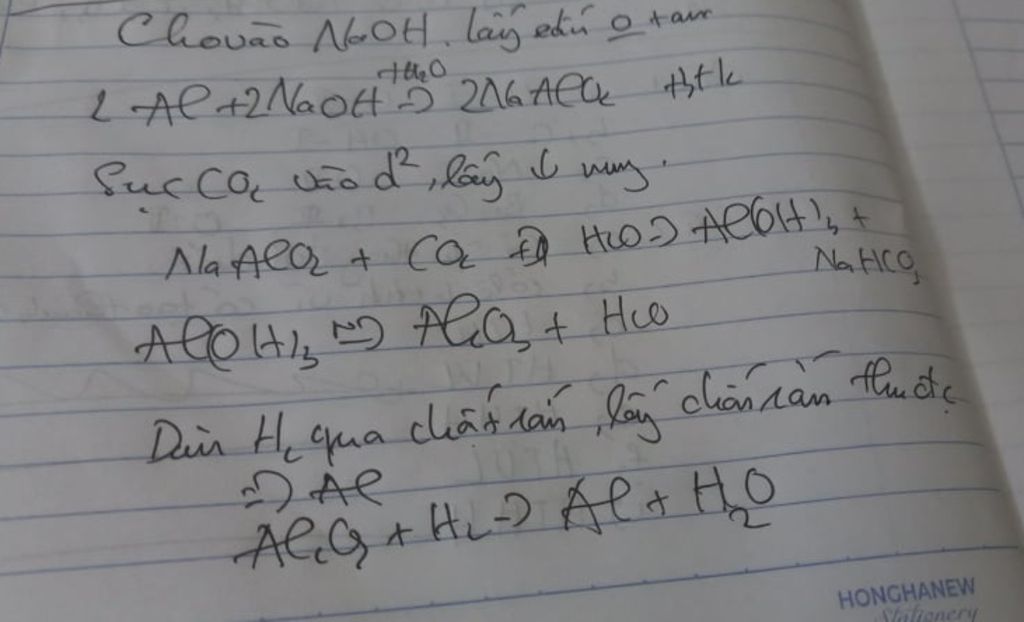 Cho vào NaOH. lấy chất o tan
+H2O
2 Al + 2NaOH => 2NaAlO2 + H2
Sục CO2 vào d², lấy ↓ nung.
NaAlO2 + CO2 + H2O => Al(OH)3 +
NaHCO3
Al(OH)3 => Al2O3 + H2O
Dẫn H2 qua chất rắn, lấy chất rắn thu đc
=> Al
Al2O3 + H2 -> Al + H2O
HONGHANEW
Stationery